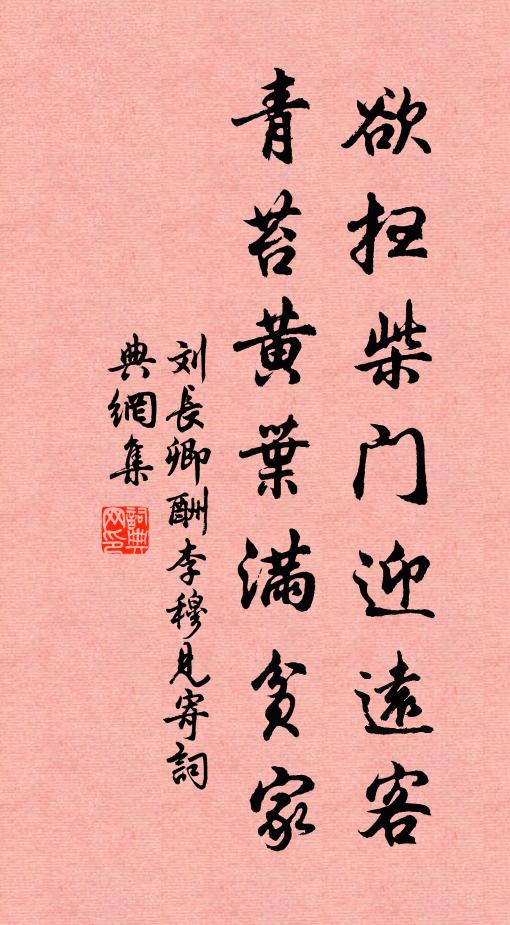 欲扫柴门迎遠客
青苔黄葉满贫家
刘長卿酬李穆見寄詞
典網集
詞典網印